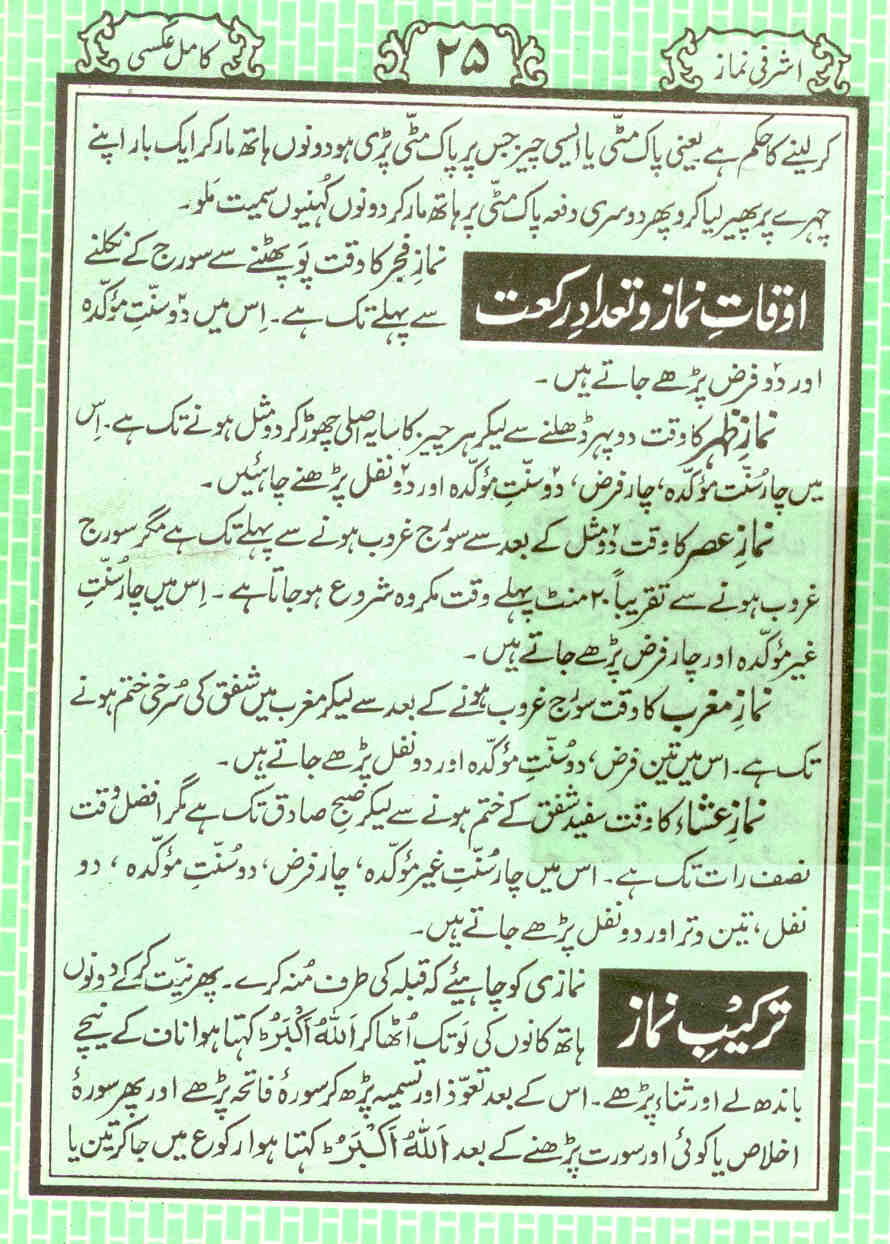 اشرفی نماز
۲۵
کامل عکسی
کر لینے کا حکم ہے یعنی پاک مٹّی یا ایسی چیز جس پر پاک مٹّی پڑی ہو دونوں ہاتھ مار کر ایک بار اپنے
چہرے پر پھیر لیا کرو پھر دوسری دفعہ پاک مٹّی پر ہاتھ مار کر دونوں کُہنیوں سمیت مَلو۔
اوقاتِ نماز و تعدادِ رکعت
نمازِ فجر کا وقت پَو پھٹنے سے سورج کے نکلنے
سے پہلے تک ہے۔ اِس میں دو۲ سنّتِ مؤکّدہ
اور دو۲ فرض پڑھے جاتے ہیں۔
نمازِ ظہر کا وقت دوپہر ڈھلنے سے لیکر ہر چیز کا سایہ اصلی چھوڑ کر دو مثل ہونے تک ہے۔ اِس
میں چار سُنّت مؤکّدہ، چار فرض، دو۲ سنّتِ مؤکّدہ اور دو۲ نفل پڑھنے چاہئیں۔
نمازِ عصر کا وقت دو۲ مثل کے بعد سے سورج غروب ہونے سے پہلے تک ہے مگر سورج
غروب ہونے سے تقریباً ۲۰ منٹ پہلے وقت مکروہ شروع ہو جاتا ہے۔ اِس میں چار سُنّتِ
غیر مؤکّدہ اور چار فرض پڑھے جاتے ہیں۔
نمازِ مغرب کا وقت سورج غروب ہونے کے بعد سے لیکر مغرب میں شفق کی سُرخی ختم ہونے
تک ہے۔ اس میں تین فرض، دو سُنّتِ مؤکّدہ اور دو نفل پڑھے جاتے ہیں۔
نمازِ عشاء کا وقت سفید شفق کے ختم ہونے سے لیکر صبح صادق تک ہے مگر افضل وقت
نصف رات تک ہے۔ اس میں چار سُنّتِ غیر مؤکّدہ، چار فرض، دو سُنّتِ مؤکّدہ، دو
نفل، تین وتر اور دو نفل پڑھے جاتے ہیں۔
ترکیبِ نماز
نمازی کو چاہیئے کہ قبلہ کی طرف مُنہ کرے۔ پھر نیّت کر کے دونوں
ہاتھ کانوں کی لَو تک اُٹھا کر اَللّٰهُ اَکْبَرُ کہتا ہوا ناف کے نیچے
باندھ لے اور ثناء پڑھے۔ اس کے بعد تعوّذ اور تسمیہ پڑھ کر سورۂ فاتحہ پڑھے اور پھر سورۂ
اخلاص یا کوئی اور سورت پڑھنے کے بعد اَللّٰهُ اَکْبَرُ کہتا ہوا رکوع میں جا کر تین یا